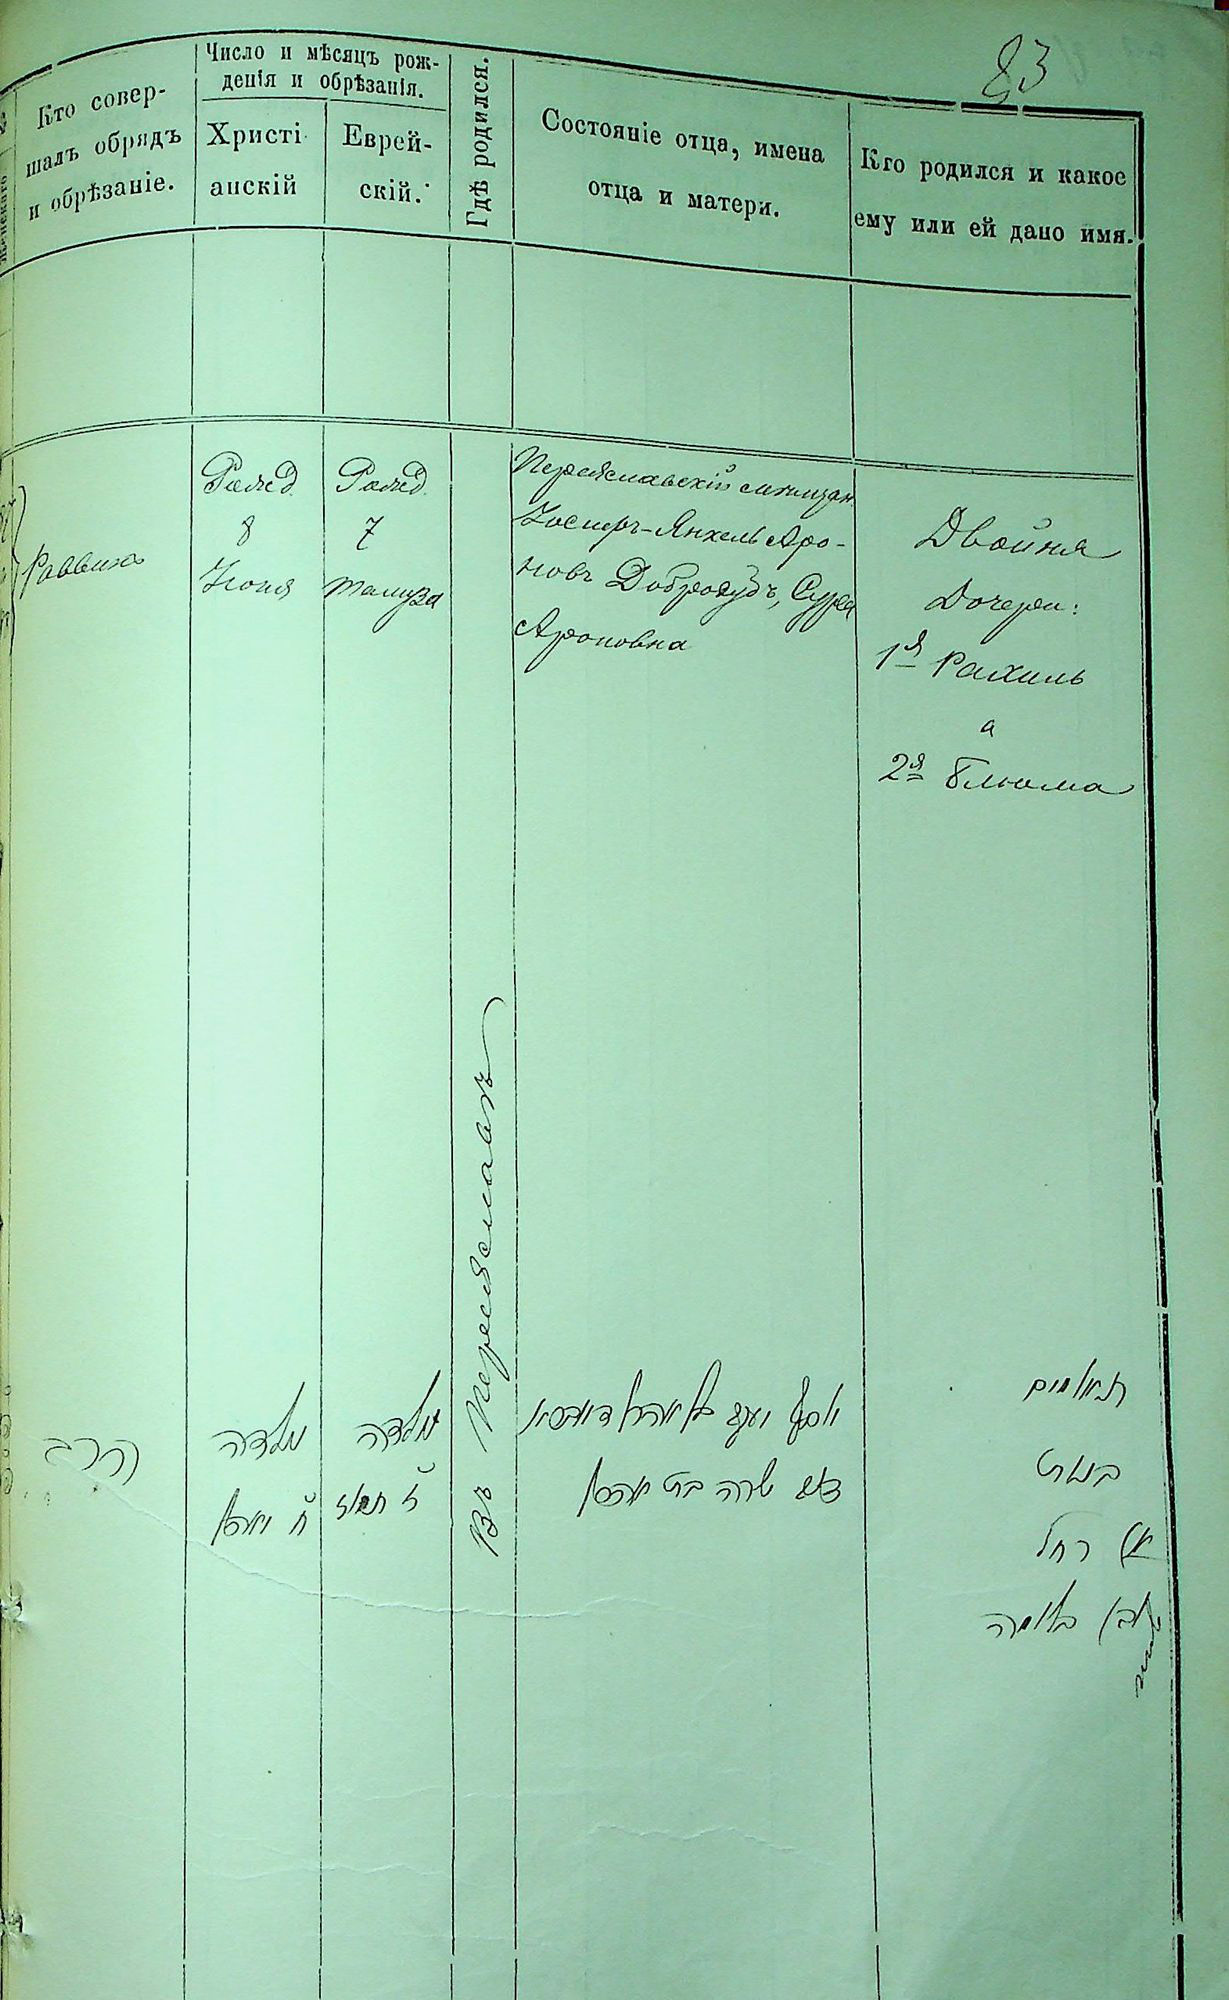 83
Кто совер-
шалъ обрядъ
и обрѣзаніе.
Число и мѣсяцъ рож-
денія и обрѣзанія.
Христі
анскій
Еврей-
скій.
Гдѣ родился.
Состояніе отца, имена
отца и матери.
Кто родился и какое
ему или ей дано имя.
Раввинъ
Рожд.
8
Іюня
Рожд.
7
тамуза
Въ Переяславѣ
Переяславскій мѣщан.
Іосифъ-Янкель Аро-
новъ, Сура
Ароновна
Двойня
Дочери:
1я Рахиль
а
2я Блюма
הרב
נולדה
ח יוני
נולדה
ז תמוז
יוסף יעקב בן אהרן
שרה בת אהרן
תאומים
בנות
א) רחל
ב) בלומה